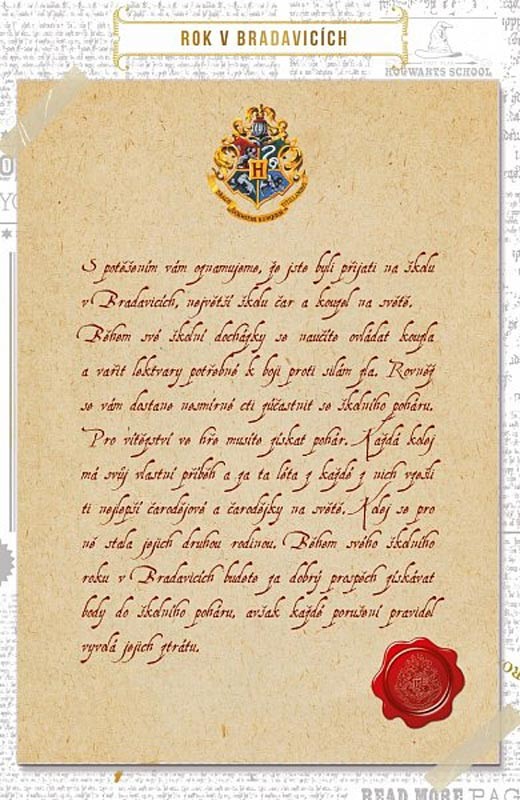 ROK V BRADAVICÍCH
HOGWARTS SCHOOL
H
S potěšením vám oznamujeme, že jste byli přijati na školu
v Bradavicích, největší školu čar a kouzel na světě.
Během své školní docházky se naučíte ovládat kouzla
a vařit lektvary potřebné k boji proti silám zla. Rovněž
se vám dostane nesmírné cti zúčastnit se školního poháru.
Pro vítězství ve hře musíte získat pohár. Každá kolej
má svůj vlastní příběh a za ta léta z každé z nich vzešli
ti nejlepší čarodějové a čarodějky na světě. Kolej se pro
ně stala jejich druhou rodinou. Během svého školního
roku v Bradavicích budete za dobrý prospěch získávat
body do školního poháru, avšak každé porušení pravidel
vyvolá jejich ztrátu.
READ MORE PAG